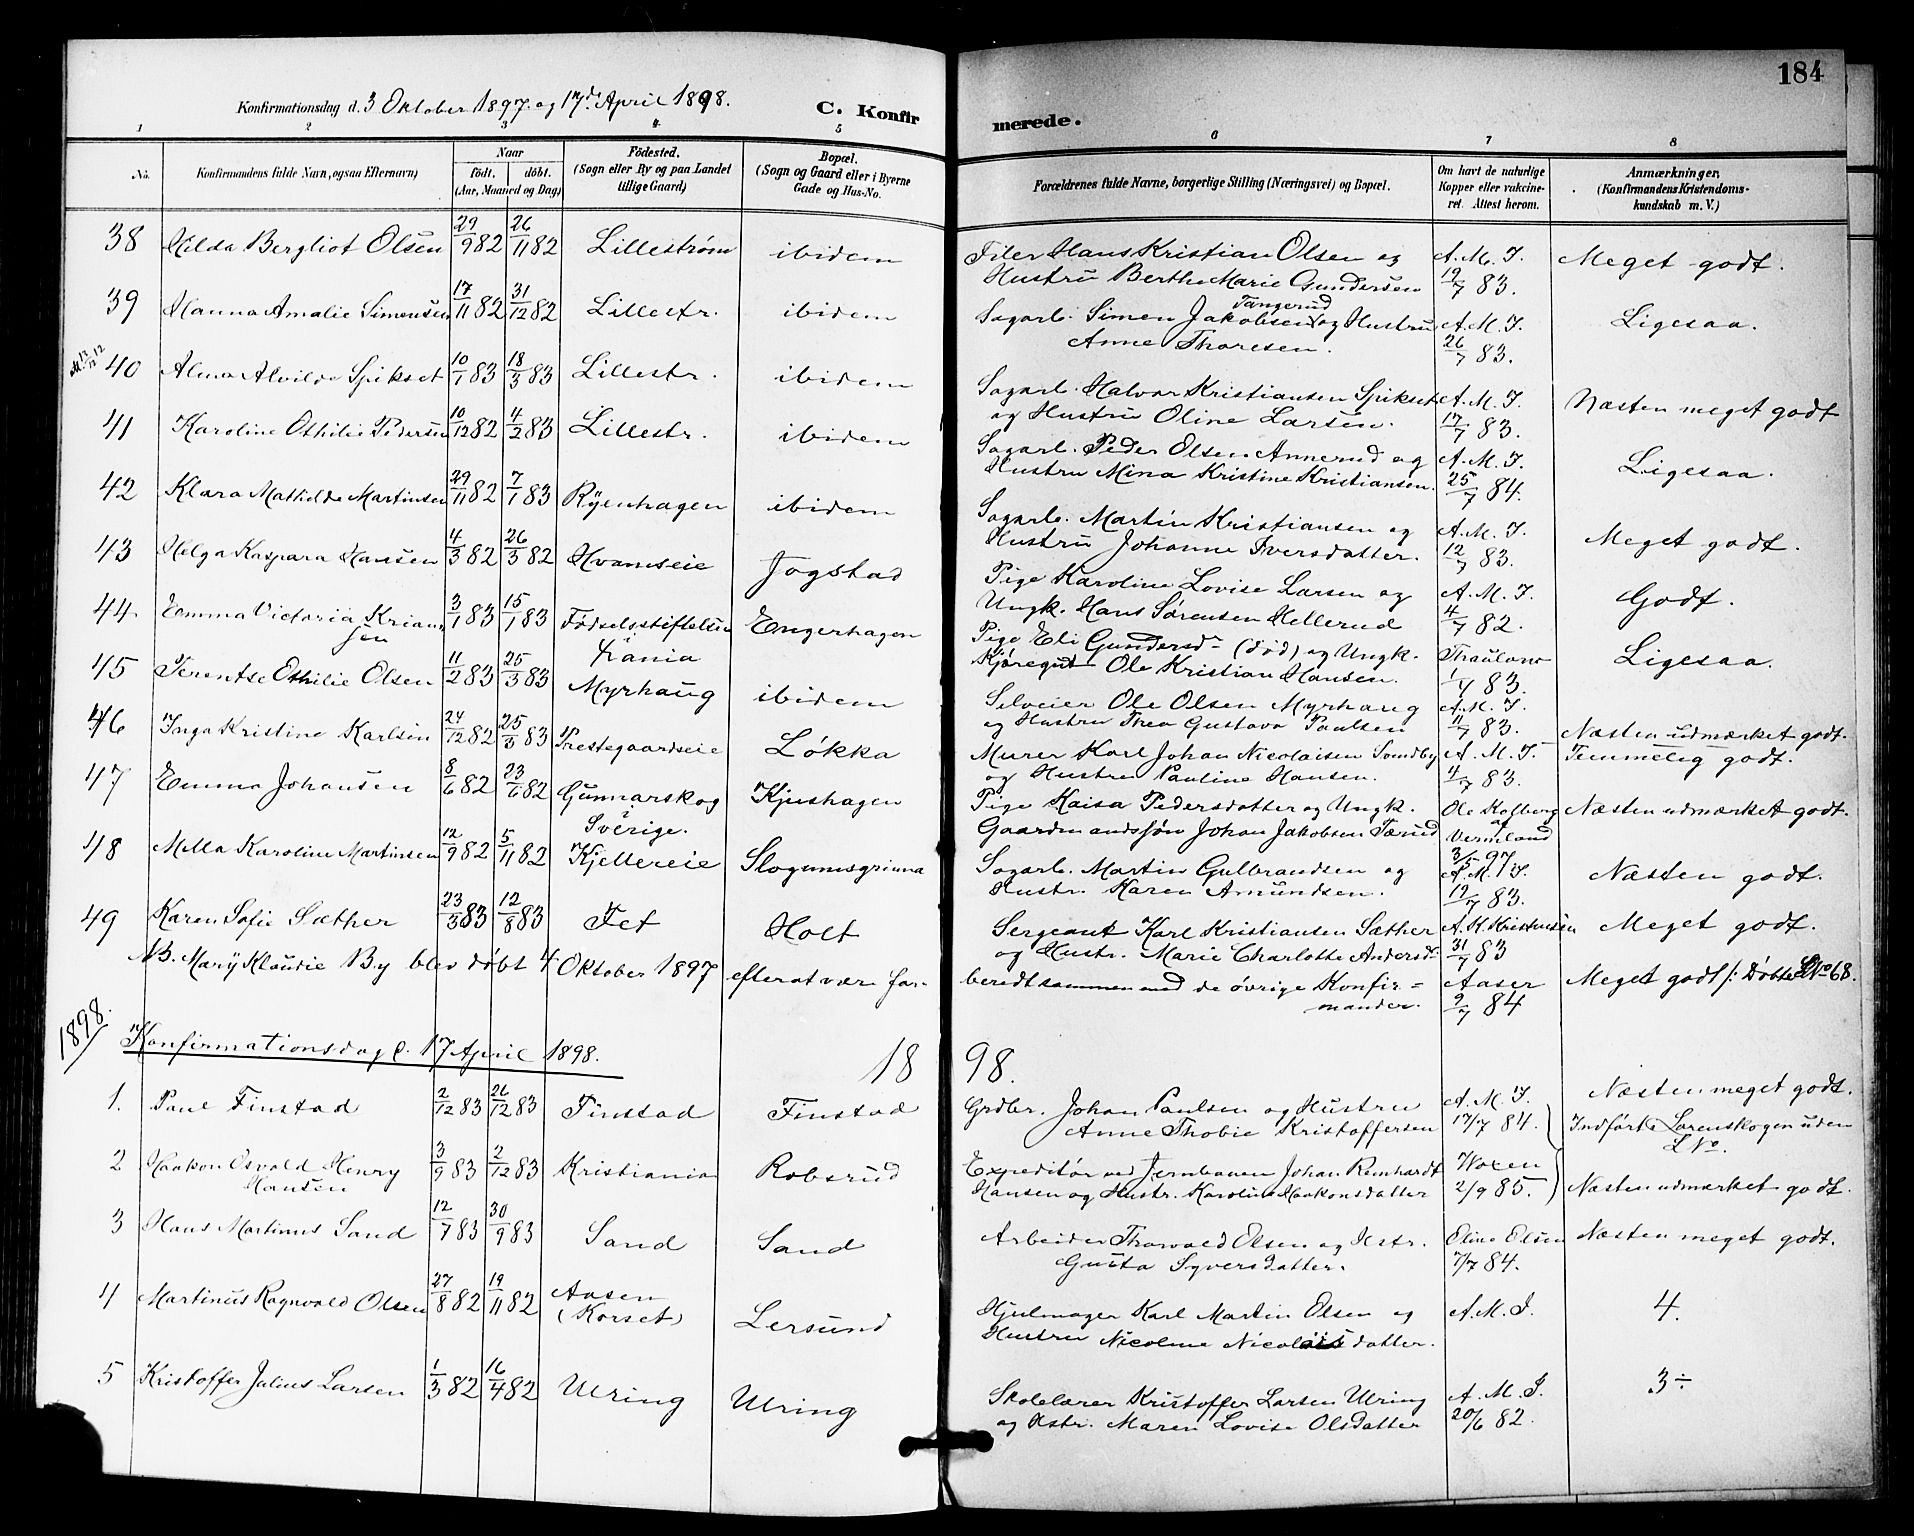 184
Konfirmationsdag d. 3 Oktober 1897 og 17de April 1898.
C. Konfirmerede.
1 2 3 4 5 6 7 8
No.
Konfirmandens fulde Navn, ogsaa Efternavn)
Naar
født. døbt.
(Aar, Maaned og Dag)
Fødested.
(Sogn eller By og paa Landet
tillige Gaard)
Bopæl.
(Sogn og Gaard eller i Byerne
Gade og Hus-No.
Forældrenes fulde Navne, borgerlige Stilling (Næringsvei) og Bopæl.
Om havt de naturlige
Kopper eller vakcine-
ret. Attest herom.
Anmærkninger.
(Konfirmandens Kristendoms-
kundskab m. V.)
38 Hilda Bergliot Olsen 29/9 82 26/11 82 Lillestrøm ibidem Filer Hans Kristian Olsen og A. M. I. Meget godt.
Hustru Berthe Marie Gundersen 19/7 83.
39 Hanna Amalie Simensen 17/11 82 31/12 82 Lillestr. ibidem Sagarb. Simen Jakobsen Tangerud og Hustru A. M. I. Ligesaa.
Anne Thoresen. 26/7 83.
40 Alma Alvilde Spikset 10/1 83 18/3 83 Lillestr. ibidem Sagarb. Halvor Kristiansen Spikset A. M. I. Næsten meget godt
og Hustru Oline Larsen. 17/7 83.
41 Karoline Othilie Pedersen 10/12 82 4/2 83 Lillestr. ibidem Sagarb. Peder Olsen Annerud og A. M. I. Ligesaa.
Hustru Mina Kristine Kristiansen. 25/7 84.
42 Klara Mathilde Martinsen 29/11 82 7/1 83 Ryenhagen ibidem Sagarb. Martin Kristiansen og A. M. I. Meget godt.
Hustru Johanne Iversdatter. 12/7 83.
43 Helga Kaspara Hansen 4/3 82 26/3 82 Hvamseie Jogstad Pige Karoline Lovise Larsen og A. M. I. Godt.
Ungk. Hans Sørensen Hellerud 4/7 82.
44. Emma Victoria Krian- 3/1 83 15/1 83 Fødselsstiftelsen Engerhagen Pige Eli Gundersd. (død) og Ungk. Ligesaa.
sen Kjøregut Ole Kristian Hansen. 1/7 83.
45 Terentse Othilie Olsen 11/2 83 25/3 83 Myrhaug ibidem Selveier Ole Olsen Myrhaug A. M. I. Næsten udmærket godt.
og Hustru Thea Gustava Paulsen 11/7 83.
46 Inga Kristine Karlsen 24/12 82 25/3 83 Prestegaardseie Løkka Murer Karl Johan Nicolaisen Sundby A. M. I. Temmelig godt.
og Hustru Pauline Hansen. 4/7 83.
47 Emma Johansen 8/6 82 23/6 82 Gunnarskog Kjushagen Pige Kaisa Pedersdatter og Ungk. Næsten udmærket godt.
Sverige. Gaardmandssøn Johan Jakobsen Vermland
3/5 97.
48 Milla Karoline Martinsen 12/9 82 5/11 82 Kjellereie Slogumsgrinna Sagarb. Martin Gulbrandsen og A. M. I. Næsten godt.
Hustr. Karen Amundsen. 19/7 83.
49 Karen Sofie Sæther 23/3 83 12/8 83 Fet Holt Sergeant Karl Kristiansen Sæther A. K. Kristensen Meget godt.
og Hustr. Marie Charlotte Andersd. 31/7 83
NB. Mary Klaudie By blev døbt 4 Oktober 1897 efterat være for- beredt sammen med de øvrige Konfir- Aaser Meget godt /: Døbte LNo 68.
mander. 9/7 84
1898. Konfirmationsdag d. 17 April 1898. 18 98.
1. Paul Finstad 2/12 83 26/12 83 Finstad Finstad Grdbr. Johan Paulsen og Hustru A. M. I. Næsten meget godt.
Anne Thobie Kristoffersen 17/7 84. Indført i Lørenskogen uden
LNo.
2 Haakon Osvald Henry 3/9 83 2/12 83 Kristiania Robsrud Expeditør ved Jernbanen Johan Reinhardt
Hansen Hansen og Hustr. Karoline Haakonsdatter 2/9 85. Næsten udmærket godt.
3 Hans Martinus Sand 12/7 83 30/9 83 Sand Sand Arbeider Thorvald Olsen og Hstr. Eline Elsen Næsten meget godt.
Gusta Syversdatter. 7/7 84.
4 Martinus Ragnvald Olsen 27/8 82 19/11 82 Aasen Lersund Hjulmager Karl Martin Olsen og A. M. I. 4.
(Korset) Hustru Nicoline Nicolaisdatter.
5 Kristoffer Julius Larsen 1/3 82 16/4 82 Ulring Ulring Skolelærer Kristoffer Larsen Ulring A. M. I. 3÷
og Hstr. Maren Lovise Olsdatter 20/6 82.